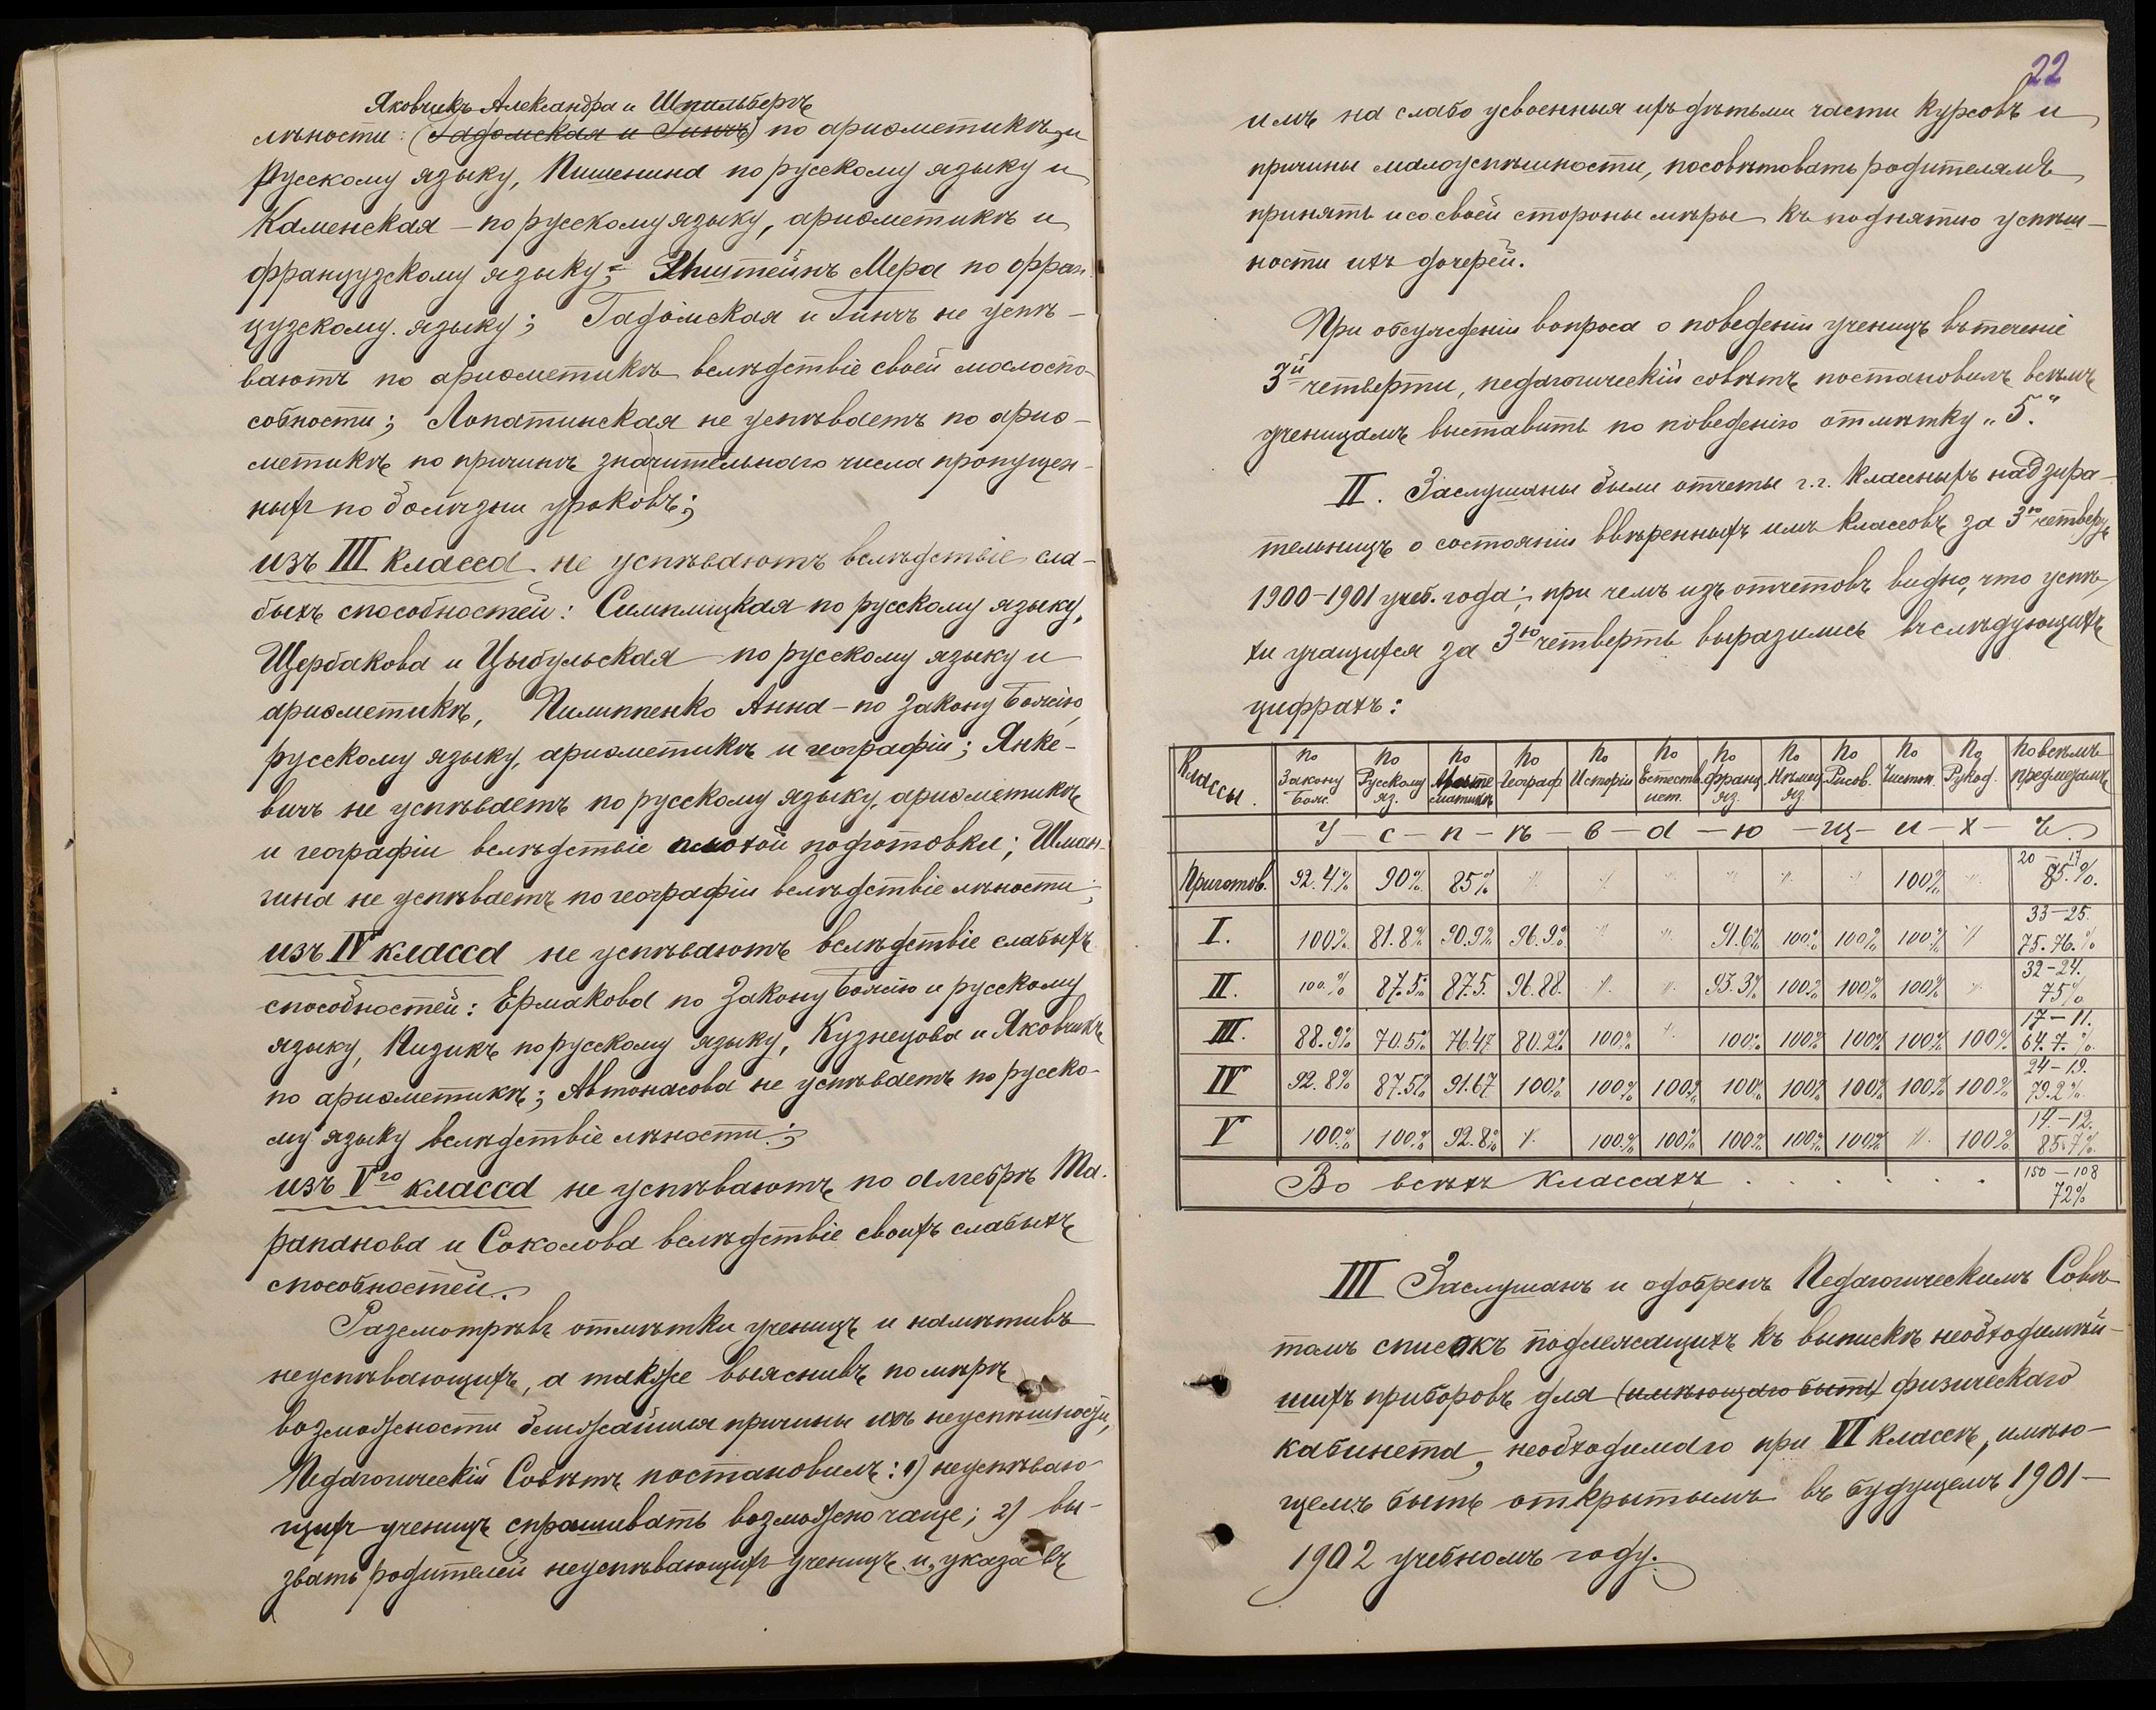 Яковчикъ Александра и Шпильбергъ
лѣности: (Гадомская и Гинчъ) по ариѳметикѣ и
русскому языку, Пишенина по русскому языку и
Каменская – по русскому языку, ариѳметикѣ и
французскому языку; Эпштейнъ Мера по фран-
цузскому языку; Гадомская и Гинчъ не успѣ-
ваютъ по ариѳметикѣ вслѣдствіе своей малоспо-
собности; Лопатинская не успѣваетъ по ариѳ-
метикѣ по причинѣ значительнаго числа пропущен-
ныхъ по болѣзни уроковъ;
изъ III класса не успѣваютъ вслѣдствіе сла-
быхъ способностей: Симплицкая по русскому языку,
Щербакова и Цыбульская по русскому языку и
ариѳметикѣ, Пилиппенко Анна – по Закону Божію,
русскому языку, ариѳметикѣ и географіи; Янке-
вичъ не успѣваетъ по русскому языку, ариѳметикѣ
и географіи вслѣдствіе плохой подготовки; Шман-
гина не успѣваетъ по географіи вслѣдствіе лѣности;
изъ IV класса не успѣваютъ вслѣдствіе слабыхъ
способностей: Ермакова по Закону Божію и русскому
языку, Пизикъ по русскому языку, Кузнецова и Яковчикъ
по ариѳметикѣ; Автонасова не успѣваетъ по русско-
му языку вслѣдствіе лѣности;
изъ Vго класса не успѣваютъ по алгебрѣ Та-
рапанова и Соколова вслѣдствіе своихъ слабыхъ
способностей.
Разсмотрѣвъ отмѣтки ученицъ и намѣтивъ
неуспѣвающихъ, а также выяснивъ по мѣрѣ
возможности ближайшія причины ихъ неуспѣшности,
Педагогическій Совѣтъ постановилъ: 1) неуспѣваю-
щихъ ученицъ спрашивать возможно чаще; 2) вы-
звать родителей неуспѣвающихъ ученицъ и, указавъ
22
имъ на слабо усвоенныя ихъ дѣтьми части курсовъ и
причины малоуспѣшности, посовѣтовать родителямъ
принять и со своей стороны мѣры къ поднятію успѣш-
ности ихъ дочерей.
При обсужденіи вопроса о поведеніи ученицъ въ теченіе
3й четверти, педагогическій совѣтъ постановилъ всѣмъ
ученицамъ выставить по поведенію отмѣтку „5."
II. Заслушаны были отчеты г.г. классныхъ надзира-
тельницъ о состояніи ввѣренныхъ имъ классовъ за 3ю четверть
1900–1901 учеб. года; при чемъ изъ отчетовъ видно, что успѣ-
хи учащихся за 3ю четверть выразились въ слѣдующихъ
цифрахъ:
Классы. по Закону Бож. по Русскому яз. по Матема­тикѣ по Географ. по Исторіи по Естеств. ист. по франц. яз. по Нѣмец. яз. по Рисов. по Чистоп. по Рукод. по всѣмъ предметамъ
У – с – п – ѣ – в – а – ю – щ – и – х – ъ
Приготов. 92.4% 90% 85% " " " " " " 100% " 20 – 17 85.%.
I. 100% 81.8% 90.9% 96.9% " " 91.6% 100% 100% 100% " 33–25. 75.76.%
II. 100.% 87.5% 87.5. 96.88. " " 93.3% 100% 100% 100% " 32–24. 75%
III. 88.9% 70.5% 76.47 80.2% 100% " 100% 100% 100% 100% 100% 17–11. 64.7.%.
IV 92.8% 87.5% 91.67 100% 100% 100% 100% 100% 100% 100% 100% 24–19. 79.2%.
V 100.% 100.% 92.8% " 100.% 100% 100% 100% 100% " 100% 14.–12. 85.7%.
Во всѣхъ классахъ . . . . . . 150 – 108 72%
III Заслушанъ и одобренъ Педагогическимъ Совѣ-
томъ списокъ подлежащихъ къ выпискѣ необходимѣй-
шихъ приборовъ для (имѣющаго быть) физическаго
кабинета, необходимаго при VI классѣ, имѣю-
щемъ быть открытымъ въ будущемъ 1901–
1902 учебномъ году.